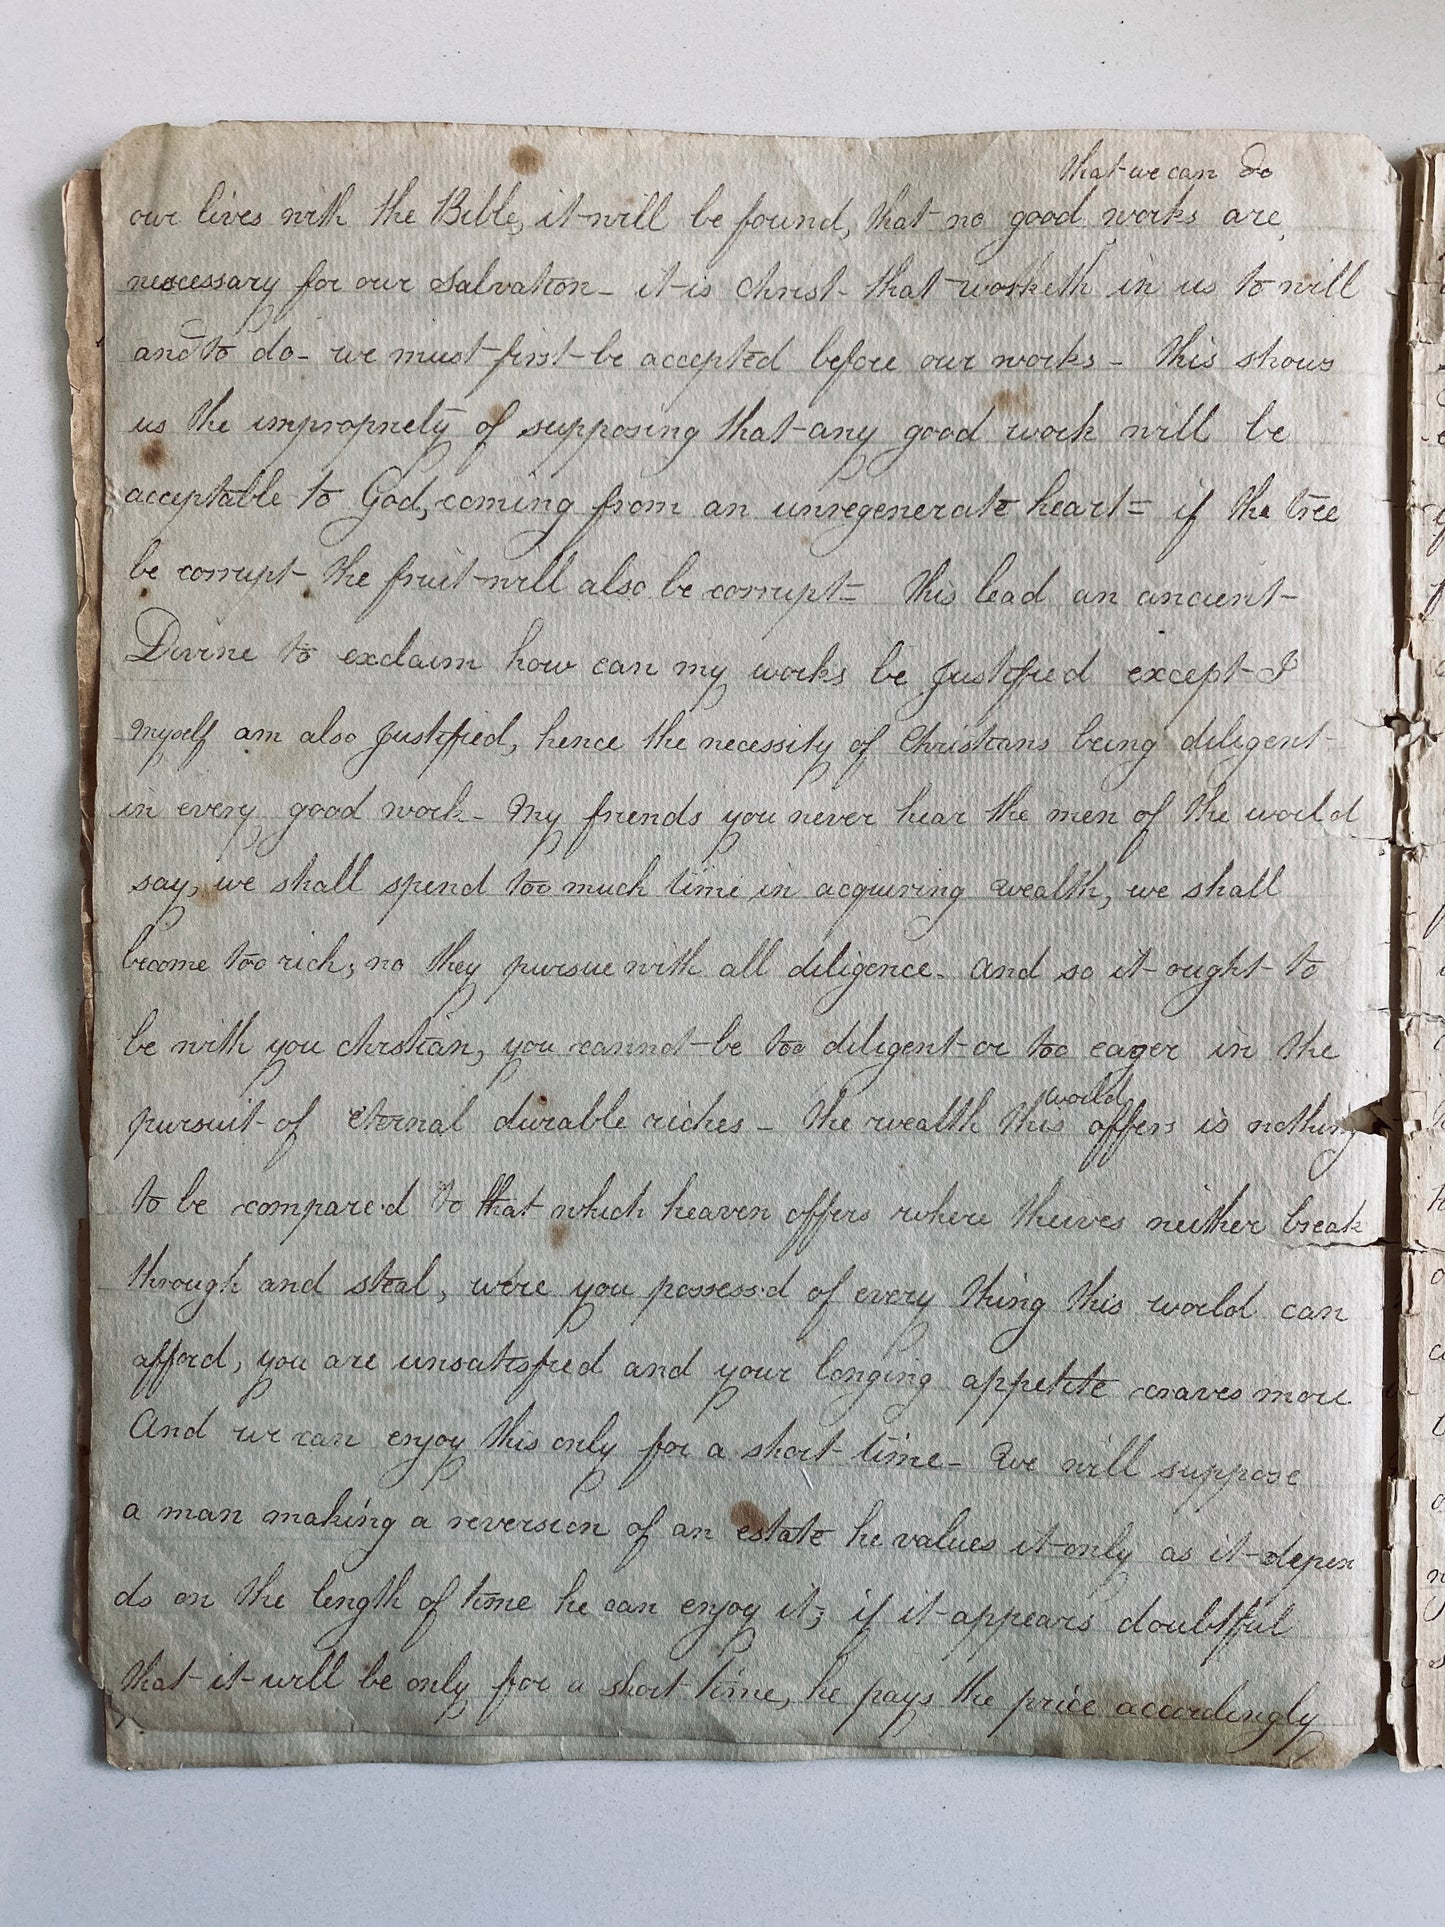 that we can do
our lives with the Bible, it will be found, that no good works are,
nescessary for our Salvation - it is Christ that worketh in us to will
and to do - we must first be accepted before our works - this shows
us the impropriety of supposing that any good work will be
acceptable to God, coming from an unregenerate heart = if the tree
be corrupt the fruit will also be corrupt = this lead an ancient
Divine to exclaim how can my works be Justified except I
myself am also Justified, hence the necessity of Christians being diligent
in every good work - My friends you never hear the men of the world
say, we shall spend too much time in acquiring wealth, we shall
become too rich, no they pursue with all diligence. and so it ought to
be with you christian, you cannot be too diligent or too eager in the
world
pursuit of eternal durable riches - the wealth this offers is nothing
to be compared to that which heaven offers where theives neither break
through and steal, were you possess'd of every thing this world can
afford, you are unsatisfied and your longing appetite craves more
And we can enjoy this only for a short time - We will suppose
a man making a reversion of an estate he values it only as it depen
ds on the length of time he can enjoy it; if it appears doubtful
that it will be only for a short time, he pays the price accordingly